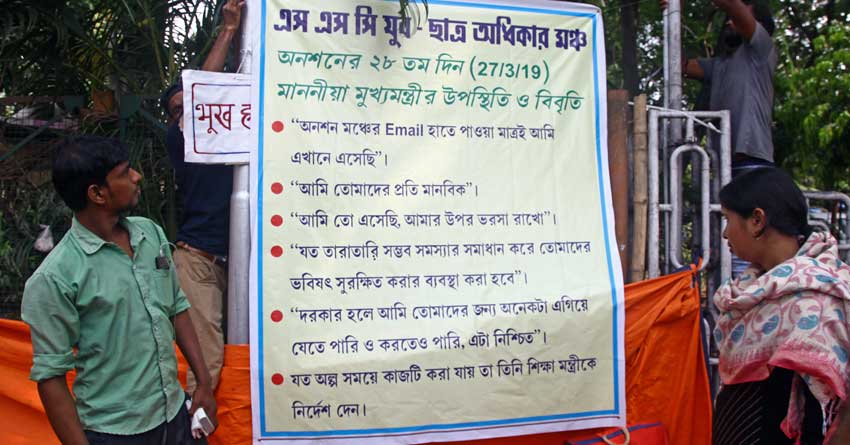 এস এস সি যুব - ছাত্র অধিকার মঞ্চ
অনশনের ২৮ তম দিন (27/3/19)
মাননীয়া মুখ্যমন্ত্রীর উপস্থিতি ও বিবৃতি
• “অনশন মঞ্চের Email হাতে পাওয়া মাত্রই আমি
এখানে এসেছি”।
• “আমি তোমাদের প্রতি মানবিক”।
• “আমি তো এসেছি, আমার উপর ভরসা রাখো”।
• “যত তারাতারি সম্ভব সমস্যার সমাধান করে তোমাদের
ভবিষৎ সুরক্ষিত করার ব্যবস্থা করা হবে”।
• “দরকার হলে আমি তোমাদের জন্য অনেকটা এগিয়ে
যেতে পারি ও করতেও পারি, এটা নিশ্চিত”।
• যত অল্প সময়ে কাজটি করা যায় তা তিনি শিক্ষা মন্ত্রীকে
নির্দেশ দেন।
भुख